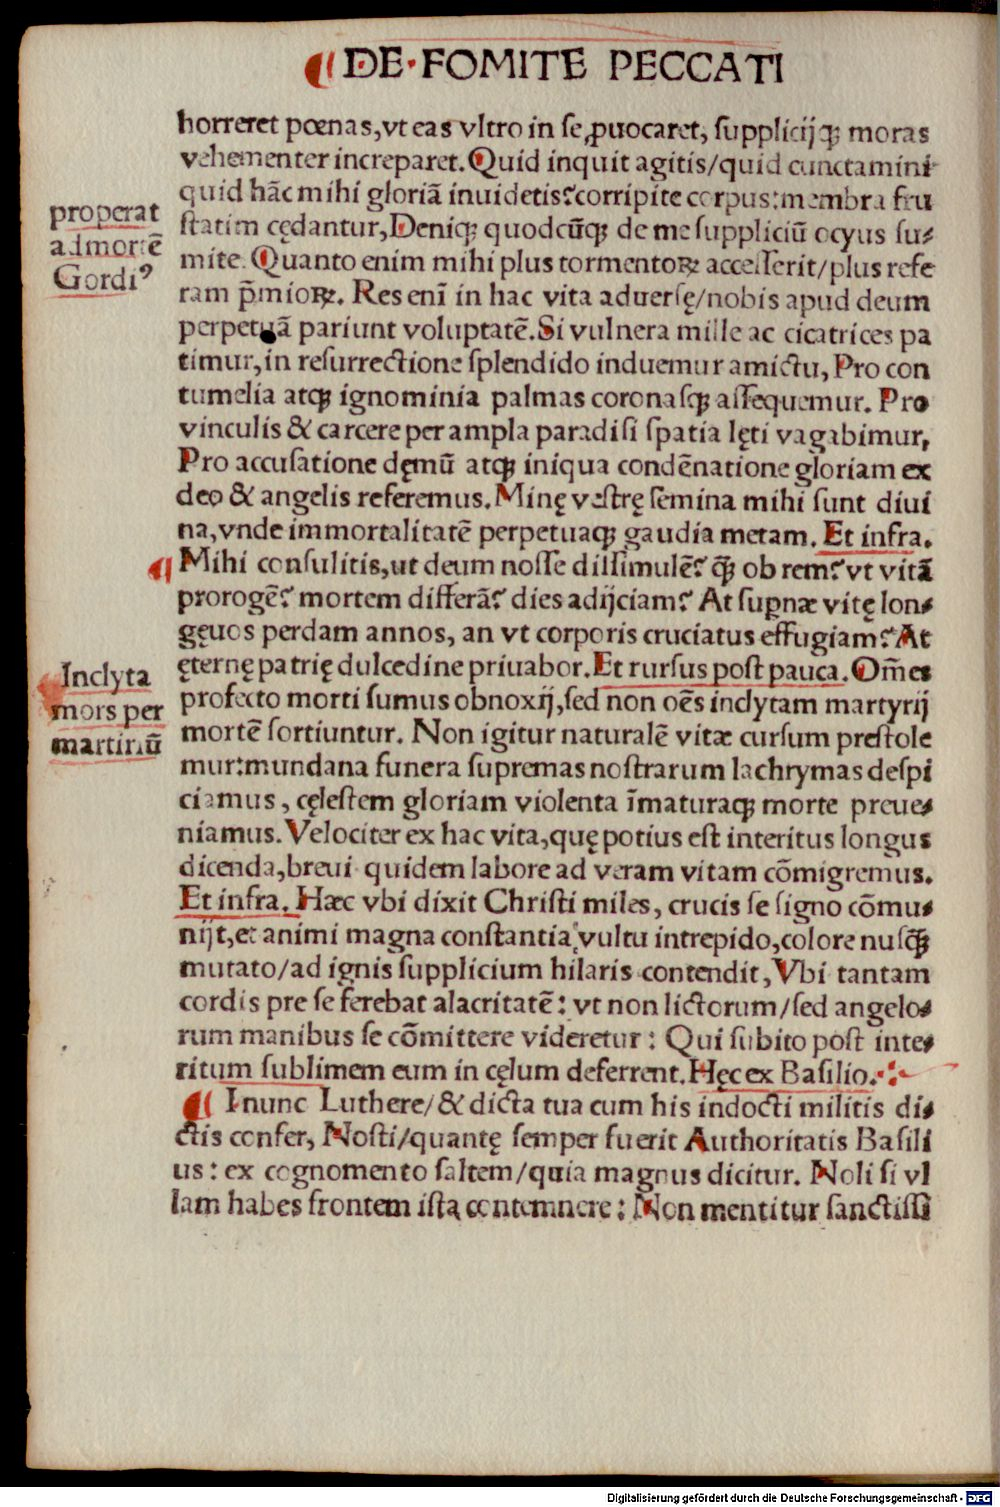 DE·FOMITE PECCATI
horreret pœnas,vt eas vltro in se ꝓuocaret, supplicijꝙ moras
vehementer increparet. Quid inquit agitis/quid cunctamini
quid hãc mihi gloriã inuidetis? corripite corpus: membra frustatim
properat
ad mortē
Gordiꝰ
statim cędantur, Deniqꝫ quodcũqꝫ de me suppliciũ ocyus su⸗
mite. Quanto enim mihi plus tormentoꝝ accesserit/plus refe
ram p̄mioꝝ. Res enī in hac vita aduersę/nobis apud deum
perpetuã pariunt voluptatē. Si vulnera mille ac cicatrices pa
timur, in resurrectione splendido induemur amictu, Pro con
tumelia atqꝫ ignominia palmas coronasqꝫ assequemur. Pro
vinculis & carcere per ampla paradisi spatia lęti vagabimur,
Pro accusatione dęmũ atqꝫ iniqua condēnatione gloriam ex
deo & angelis referemus. Minę vestrę semina mihi sunt diui
na, vnde immortalitatē perpetuaqꝫ gaudia metam. Et infra.
Mihi consulitis, ut deum nosse dissimulē? q̃ꝫ ob rem? vt vitã
prorogē? mortem differã? dies adijciam? At supnæ vitę lon⸗
gęuos perdam annos, an vt corporis cruciatus effugiam? At
ęternę patrię dulcedine priuabor. Et rursus post pauca. Om̄es
Inclyta
mors per
martiriũ
profecto morti sumus obnoxij, sed non oēs inclytam martyrij
mortē sortiuntur. Non igitur naturalē vitæ cursum prestole
mur: mundana funera supremas nostrarum lachrymas despi
ciamus, cęlestem gloriam violenta īmaturaqꝫ morte preue⸗
niamus. Velociter ex hac vita, quę potius est interitus longus
dicenda, breui quidem labore ad veram vitam cõmigremus.
Et infra. Hæc vbi dixit Christi miles, crucis se signo cõmu⸗
nijt, et animi magna constantia, vultu intrepido, colore nusq̃ꝫ
mutato/ad ignis supplicium hilaris contendit, Vbi tantam
cordis pre se ferebat alacritatē: vt non lictorum/sed angelo⸗
rum manibus se cõmittere videretur: Qui subito post inte⸗
ritum sublimem eum in cęlum deferrent. Hęc ex Basilio.
I nunc Luthere/& dicta tua cum his indocti militis di⸗
ctis confer, Nosti/quantę semper fuerit Authoritatis Basili
us: ex cognomento saltem/quia magnus dicitur. Noli si vl
lam habes frontem ista contemnere: Non mentitur sanctissi
Digitalisierung gefördert durch die Deutsche Forschungsgemeinschaft - DFG